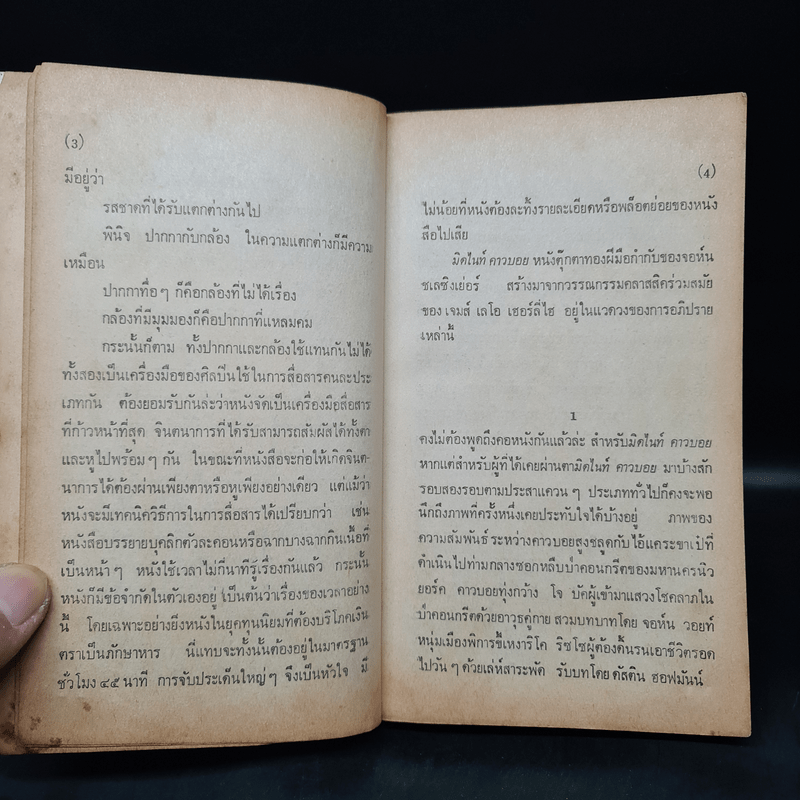 (3)
มีอยู่ว่า
รสชาดที่ได้รับแตกต่างกันไป
พินิจ ปากกากับกล้อง ในความแตกต่างก็มีความ
เหมือน
ปากกาทื่อๆ ก็คือกล้องที่ไม่ได้เรื่อง
กล้องที่มีมุมมองก็คือปากกาที่แหลมคม
กระนั้นก็ตาม ทั้งปากกาและกล้องใช้แทนกันไม่ได้
ทั้งสองเป็นเครื่องมือของศิลปินใช้ในการสื่อสารคนละประ
เภทกัน ต้องยอมรับกันล่ะว่าหนังจัดเป็นเครื่องมือสื่อสาร
ที่ก้าวหน้าที่สุด จินตนาการที่ได้รับสามารถสัมผัสได้ทั้งตา
และหูไปพร้อมๆ กัน ในขณะที่หนังสือจะก่อให้เกิดจินต-
นาการได้ต้องผ่านเพียงตาหรือหูเพียงอย่างเดียว แต่แม้ว่า
หนังจะมีเทคนิควิธีการในการสื่อสารได้เปรียบกว่า เช่น
หนังสือบรรยายบุคลิกตัวละคอนหรือฉากบางฉากกินเนื้อที่
เป็นหน้าๆ หนังใช้เวลาไม่กี่นาทีรู้เรื่องกันแล้ว กระนั้น
หนังก็มีข้อจำกัดในตัวเองอยู่ เป็นต้นว่าเรื่องของเวลาอย่าง
นี้ โดยเฉพาะอย่างยิ่งหนังในยุคทุนนิยมที่ต้องบริโภคเงิน
ตราเป็นภักษาหาร นี่แทบจะทั้งนั้นต้องอยู่ในมาตรฐาน
ชั่วโมง ๔๕ นาที การจับประเด็นใหญ่ๆ จึงเป็นหัวใจ มี
(4)
ไม่น้อยที่หนังต้องละทิ้งรายละเอียดหรือพล็อตย่อยของหนัง
สือไปเสีย
มิดไนท์ คาวบอย หนังตุ๊กตาทองฝีมือกำกับของจอห์น
ชเลซิงเย่อร์ สร้างมาจากวรรณกรรมคลาสสิคร่วมสมัย
ของ เจมส์ เลโอ เฮอร์ลี่ไฮ อยู่ในแวดวงของการอภิปราย
เหล่านี้
1
คงไม่ต้องพูดถึงคอหนังกันแล้วล่ะ สำหรับมิดไนท์ คาวบอย
หากแต่สำหรับผู้ที่ได้เคยผ่านตามิดไนท์ คาวบอย มาบ้างสัก
รอบสองรอบตามประสาแควนๆ ประเภททั่วไปก็คงจะพอ
นึกถึงภาพที่ครั้งหนึ่งเคยประทับใจได้บ้างอยู่ ภาพของ
ความสัมพันธ์ระหว่างคาวบอยสูงชลูดกับไอ้แคระขาเป๋ที่
ดำเนินไปท่ามกลางซอกหลืบป่าคอนกรีตของมหานครนิว
ยอร์ค คาวบอยทุ่งกว้าง โจ บัคผู้เข้ามาแสวงโชคลาภใน
ป่าคอนกรีตด้วยอาวุธคู่กาย สวมบทบาทโดย จอห์น วอยท์
หนุ่มเมืองพิการขี้เหงาริโค ริซโซผู้ต้องดิ้นรนเอาชีวิตรอด
ไปวันๆ ด้วยเล่ห์สาระพัด รับบทโดย ดัสติน ฮอฟมันน์